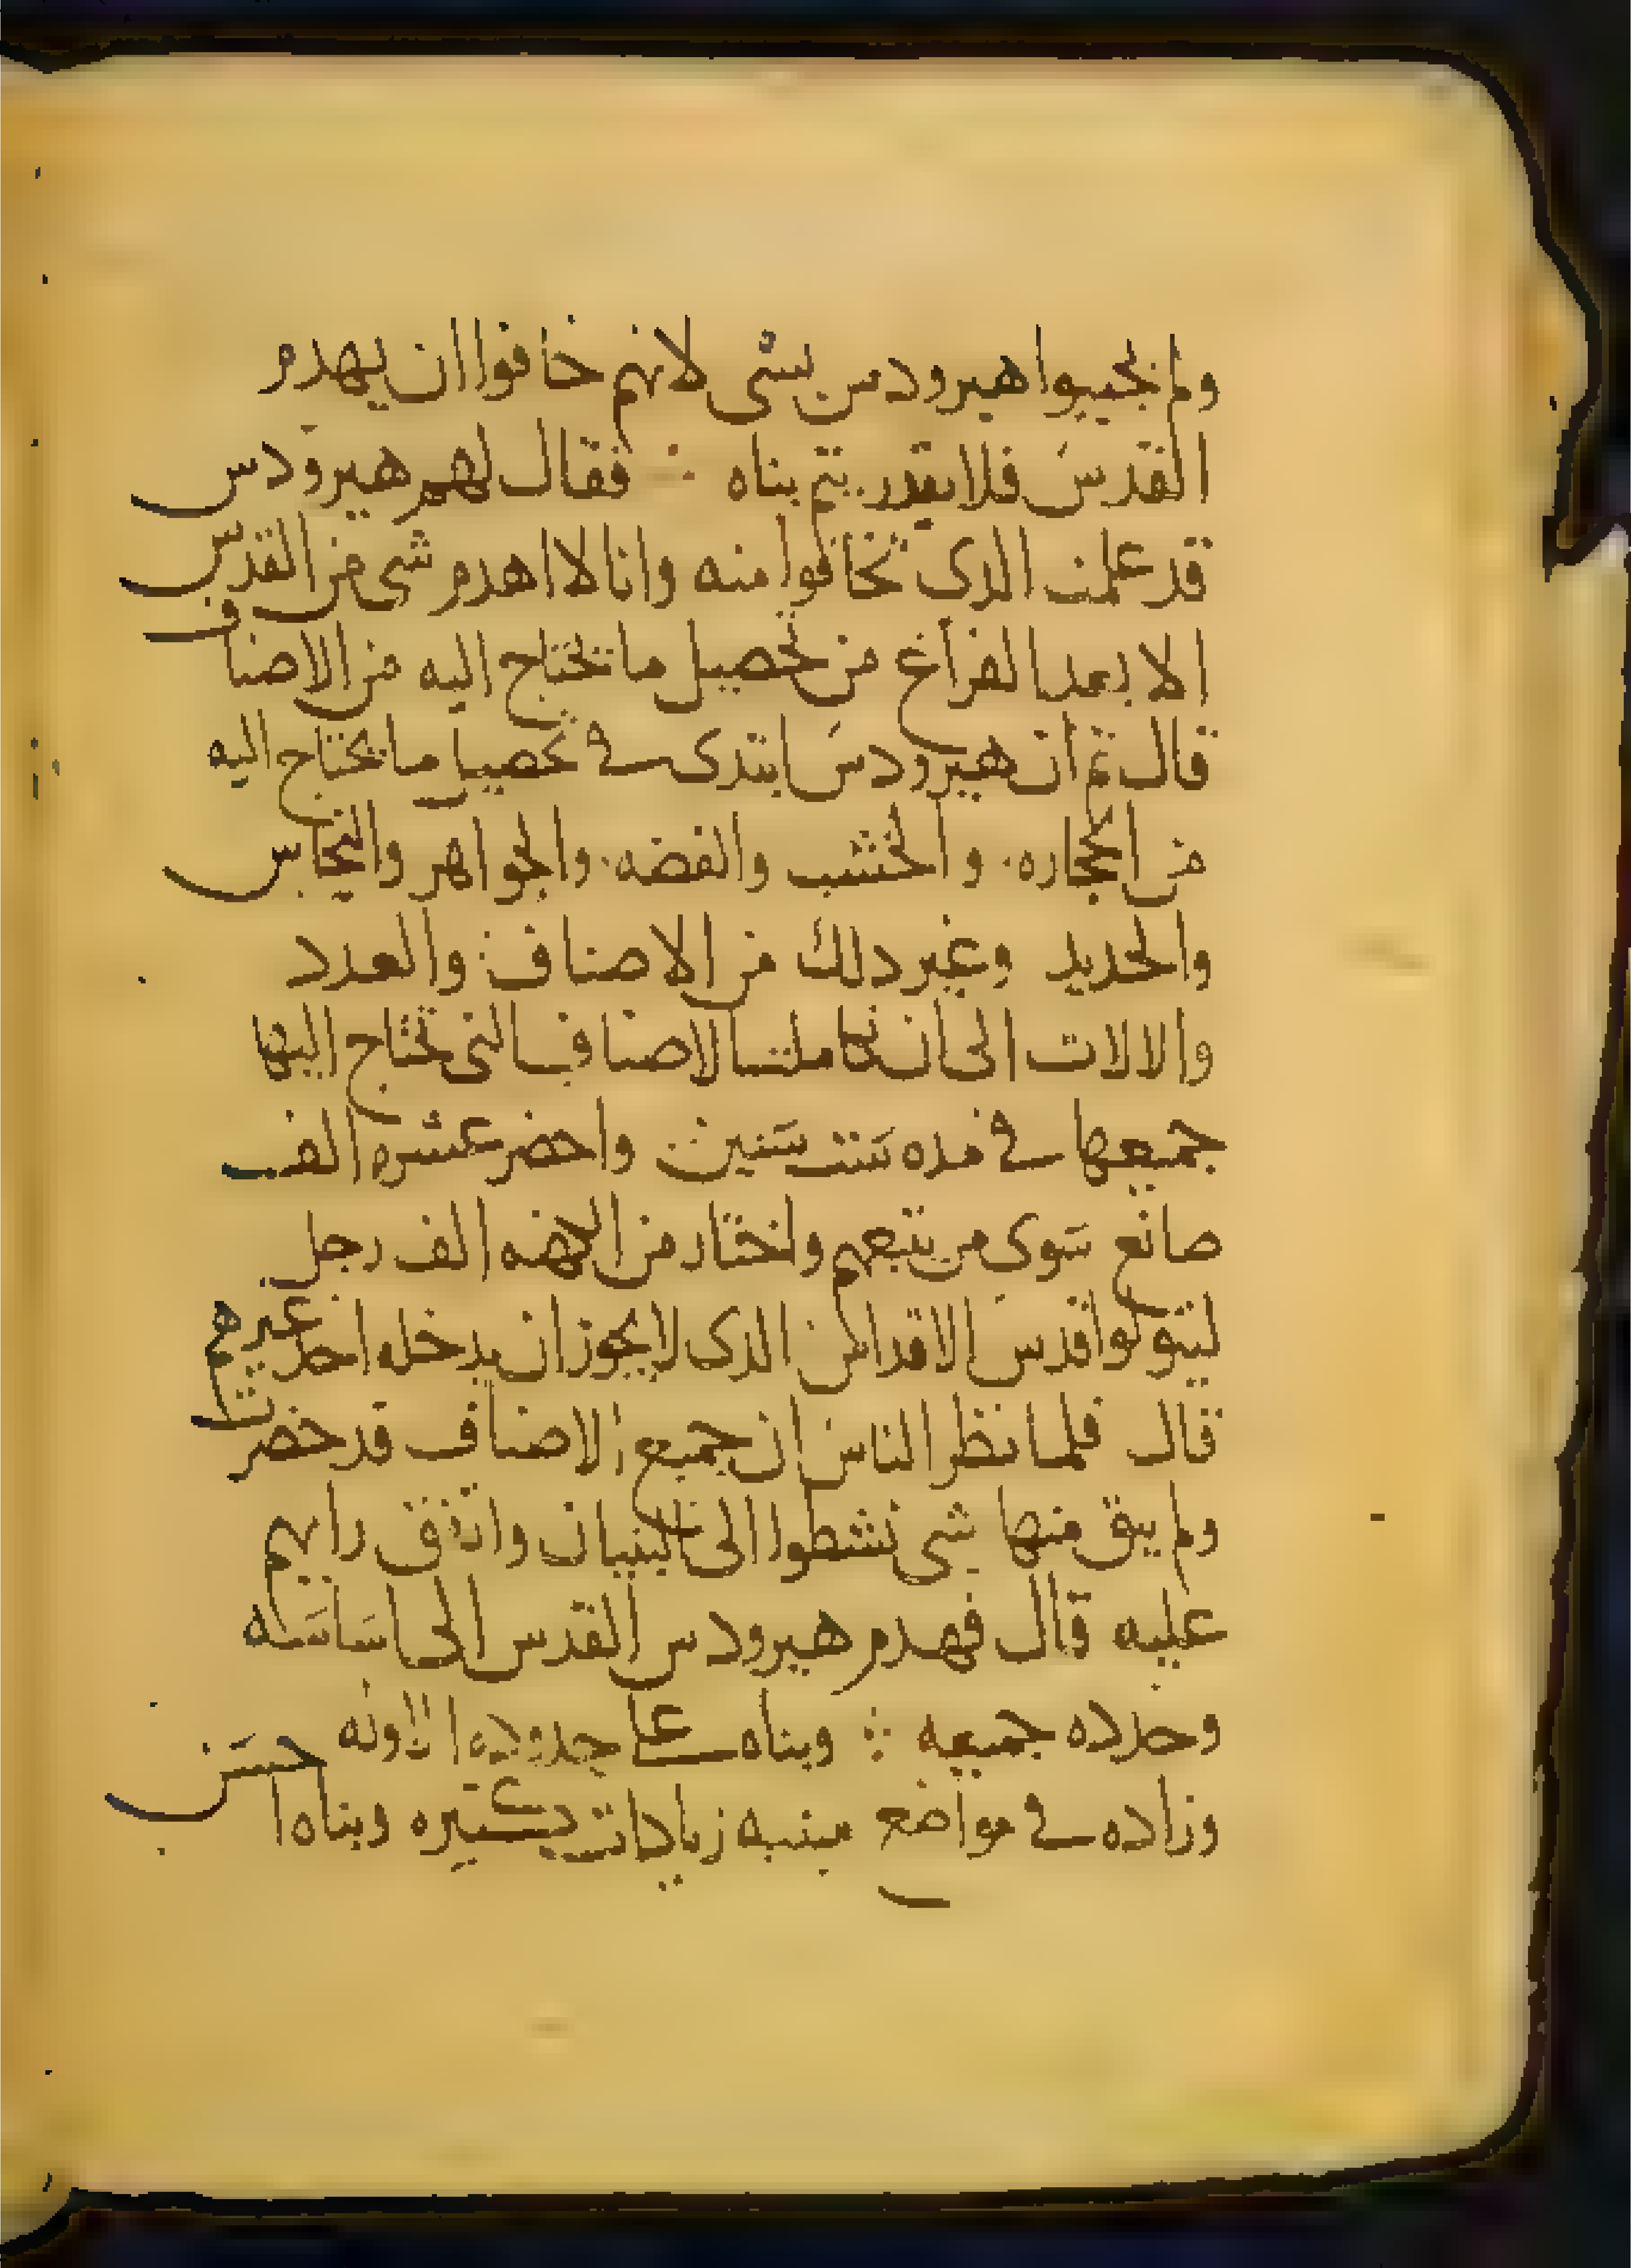 ولم يجيبوا هيرودس بشى لانهم خافوا ان يهدم
القدس فلا يقدر يتم بناه ∴ فقال لهم هيرودس
قد علمت الدى تخافوا منه وانا لا اهدم شى من القدس
الا بعد الفراغ من تحصيل ما تحتاج اليه من الاصناف
قال ثم ان هيرودس ابتدى في تحصيل ما يحتاج اليه
من الحجاره. والخشب والفضه. والجواهر والنحاس
والحديد وغير دلك من الاصناف: والعدد
والالات الى ان كاملت الاصناف التى تحتاج اليها
جميعها في مده ست سنين واحضر عشره الف
صانع سوى من يتبعهم واختار من الكهنه الف رجل
ليتولوا قدس الاقداس الدى لا يجوز ان يدخله احد غيرهم
قال فلما نظر الناس ان جميع الاصناف قد حضرت
ولم يبق منها شى نشطوا الى البنيان واتفق رايهم
عليه قال فهدم هيرودس القدس الى اساسه
وحدده جميعه ∴ وبناه على حدوده الاوله
وزاده في مواضع مبنيه زيادات كتيره وبناه احسن